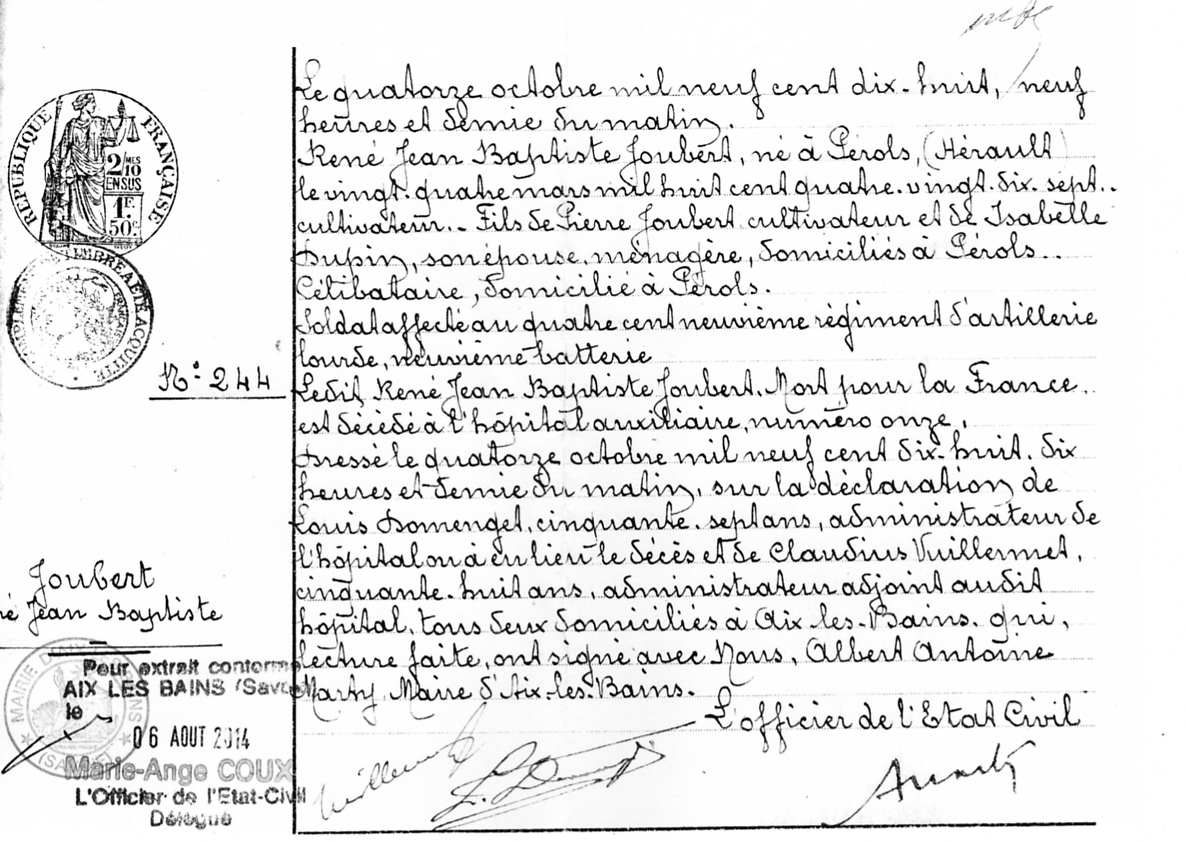 Le quatorze octobre mil neuf cent dix-huit, neuf
heures et demie du matin.
René Jean Baptiste Joubert, né à Pérols, (Hérault)
le vingt-quatre mars mil huit cent quatre-vingt-dix-sept..
cultivateur.- Fils de Pierre Joubert cultivateur et de Isabelle
Dupin, son épouse, ménagère, domiciliés à Pérols..
Célibataire, domicilié à Pérols.
Soldat affecté au quatre cent neuvième régiment d'artillerie
lourde, neuvième batterie
Ledit René Jean Baptiste Joubert. Mort pour la France.
est décédé à l'hôpital auxiliaire, numéro onze.
Dressé le quatorze octobre mil neuf cent dix-huit. dix
heures et demie du matin, sur la déclaration de
Louis Domenget, cinquante-sept ans, administrateur de
l'hôpital ou à eu lieu le décès et de Claudius Vuillermet,
cinquante-huit ans, administrateur adjoint audit
hôpital, tous deux domiciliés à Aix-les-Bains. qui,
lecture faite, ont signé avec Nous, Albert Antoine
Marty, Maire d'Aix-les-Bains.
L'officier de l'Etat Civil
RÉPUBLIQUE FRANÇAISE
2/10 MES
EN SUS
1F.
50c
N° 244
Joubert
né Jean Baptiste
Pour extrait conforme
AIX LES BAINS (Savoie)
le
06 AOUT 2014
Marie-Ange COUX
L'Officier de l'Etat-Civil
Délégué